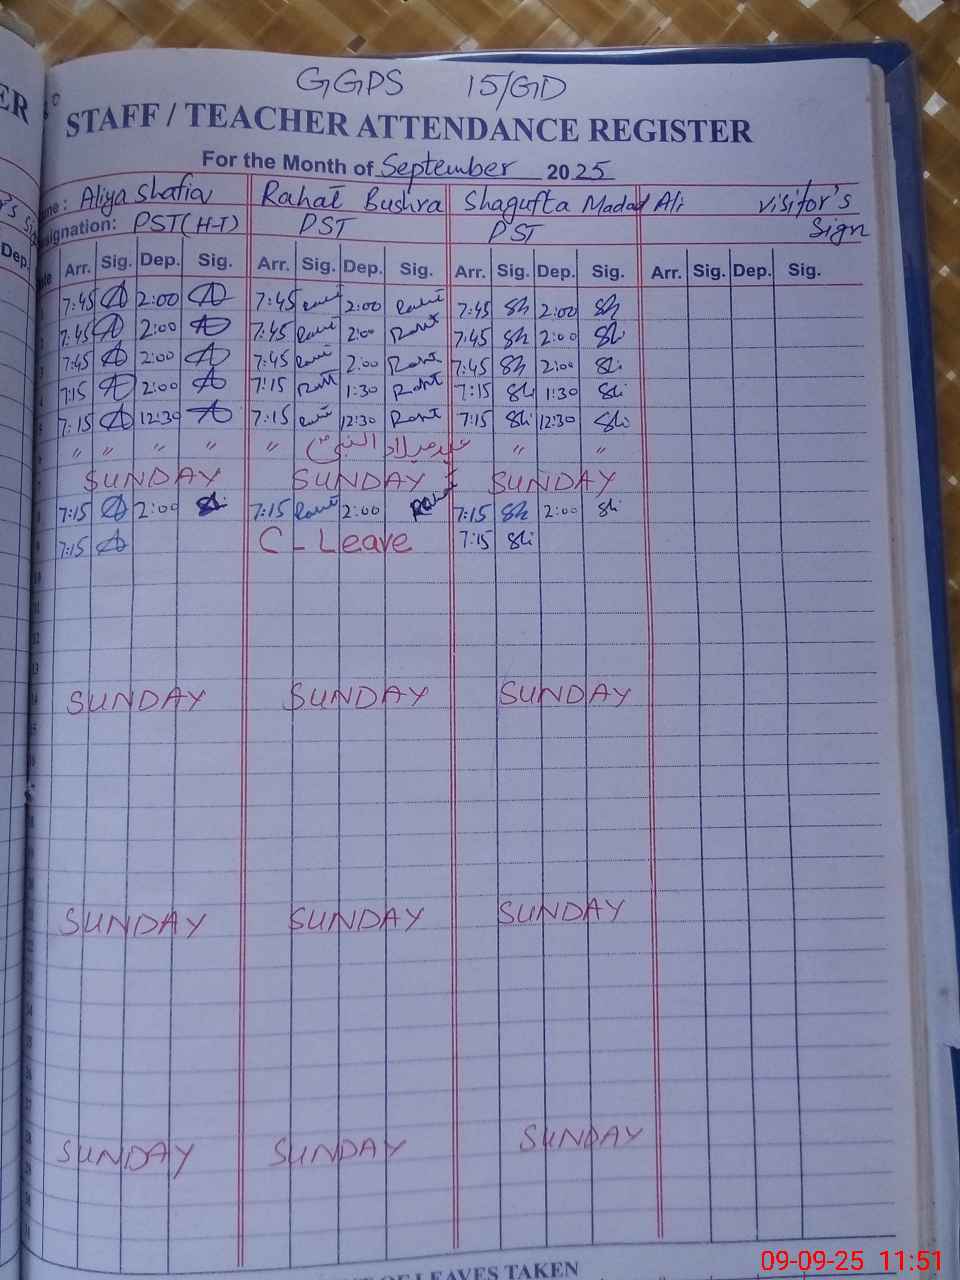 GGPS 15/GD
STAFF / TEACHER ATTENDANCE REGISTER
For the Month of September 2025
Aliya Shafia Rahat Bushra Shagufta Madad Ali visitor's
signation: PST(H-T) PST PST Sign
Dep. Arr. Sig. Dep. Sig. Arr. Sig. Dep. Sig. Arr. Sig. Dep. Sig. Arr. Sig. Dep. Sig.
7:45 2:00 7:45 2:00 7:45 Sh 2:00 Sh
7:45 2:00 7:45 2:00 7:45 Sh 2:00 Sh
7:45 2:00 7:45 2:00 7:45 Sh 2:00 Sh
7:15 2:00 7:15 1:30 7:15 Sh 1:30 Sh
7:15 12:30 7:15 12:30 7:15 Sh 12:30 Sh
" " " " " عید میلاد النبیؐ " "
SUNDAY SUNDAY SUNDAY
7:15 2:00 7:15 2:00 7:15 Sh 2:00 Sh
7:15 C - Leave 7:15 Sh
SUNDAY SUNDAY SUNDAY
SUNDAY SUNDAY SUNDAY
SUNDAY SUNDAY SUNDAY
OF LEAVES TAKEN
09-09-25 11:51